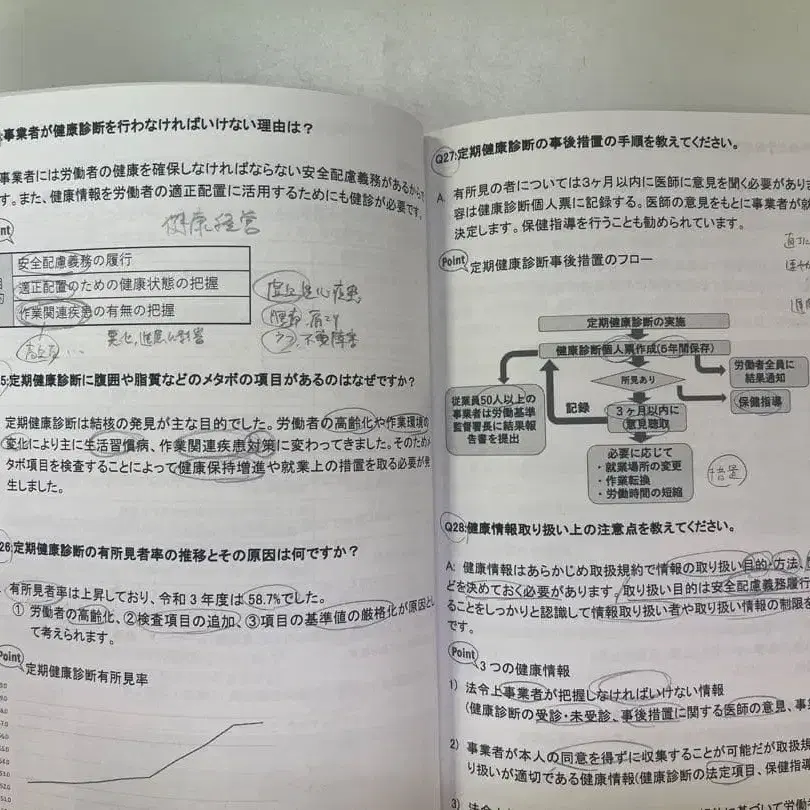 事業者が健康診断を行わなければいけない理由は？
事業者には労働者の健康を確保しなければならない安全配慮義務があるから
す。また、健康情報を労働者の適正配置に活用するためにも健診が必要です。
健康経営
安全配慮義務の履行
適正配置のための健康状態の把握
作業関連疾患の有無の把握
5:定期健康診断に腹囲や脂質などのメタボの項目があるのはなぜですか？
定期健康診断は結核の発見が主な目的でした。労働者の高齢化や作業環境の
変化により主に生活習慣病、作業関連疾患対策に変わってきました。そのため
タボ項目を検査することによって健康保持増進や就業上の措置を取る必要が発
生しました。
26:定期健康診断の有所見者率の推移とその原因は何ですか？
有所見者率は上昇しており、令和3年度は58.7%でした。
①労働者の高齢化、②検査項目の追加、③項目の基準値の厳格化が原因とし
て考えられます。
Point
定期健康診断有所見率
Q27:定期健康診断の事後措置の手順を教えてください。
A. 有所見の者については3ヶ月以内に医師に意見を聞く必要があります
容は健康診断個人票に記録する。医師の意見をもとに事業者が就
決定します。保健指導を行うことも勧められています。
Point 定期健康診断事後措置のフロー
定期健康診断の実施
健康診断個人票作成(5年間保存)
所見あり
労働者全員に
結果通知
保健指導
従業員50人以上の
事業者は労働基準
監督署長に結果報
告書を提出
記録
3ヶ月以内に
意見聴取
必要に応じて
・就業場所の変更
・作業転換
・労働時間の短縮
措置
Q28:健康情報取り扱い上の注意点を教えてください。
A: 健康情報はあらかじめ取扱規約で情報の取り扱い目的・方法、
どを決めておく必要があります。取り扱い目的は安全配慮義務履行
ることをしっかりと認識して情報取り扱い者や取り扱い情報の制限を
です。
Point
3つの健康情報
1) 法令上事業者が把握しなければいけない情報
(健康診断の受診・未受診、事後措置に関する医師の意見、事
2) 事業者が本人の同意を得ずに収集することが可能だが取扱規
り扱いが適切である健康情報(健康診断の法定項目、保健指導